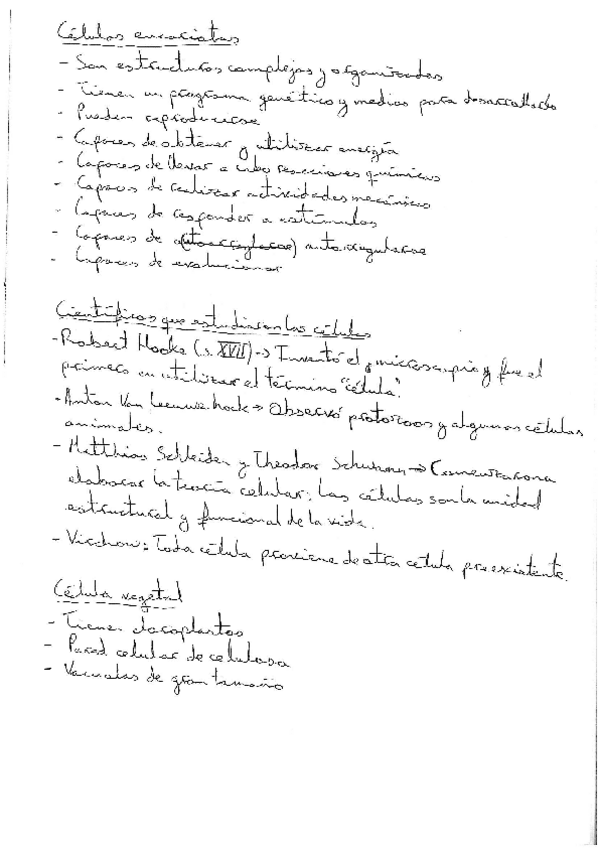 Células eucariotas
- Son estructuras complejas y organizadas
- Tienen un programa genético y medios para desarrollarlo
- Pueden reproducirse
- Capaces de obtener y utilizar energía
- Capaces de llevar a cabo reacciones químicas
- Capaces de realizar actividades mecánicas
- Capaces de responder a estímulos
- Capaces de autorregularse
- Capaces de evolucionar
Científicos que estudiaron las células
- Robert Hooke (s. XVII) -> Inventó el microscopio y fue el
primero en utilizar el término "célula".
- Anton Van Leeuwehock -> Observó protozoos y algunas células
animales.
- Matthias Schleiden y Theodor Schwann -> Comenzaron a
elaborar la teoría celular: Las células son la unidad
estructural y funcional de la vida.
- Virchow: Toda célula proviene de otra célula preexistente.
Célula vegetal
- Tienen cloroplastos
- Pared celular de celulosa
- Vacuolas de gran tamaño